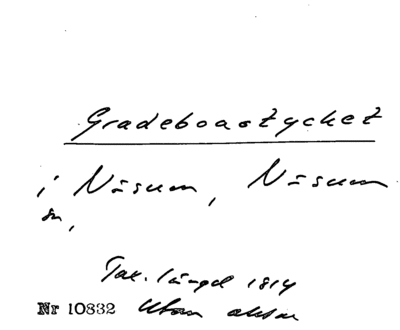 Gradeboastycket
i Näsum, Näsum
sn,
Tax. längd 1814
Nr 10832 Utan aksar